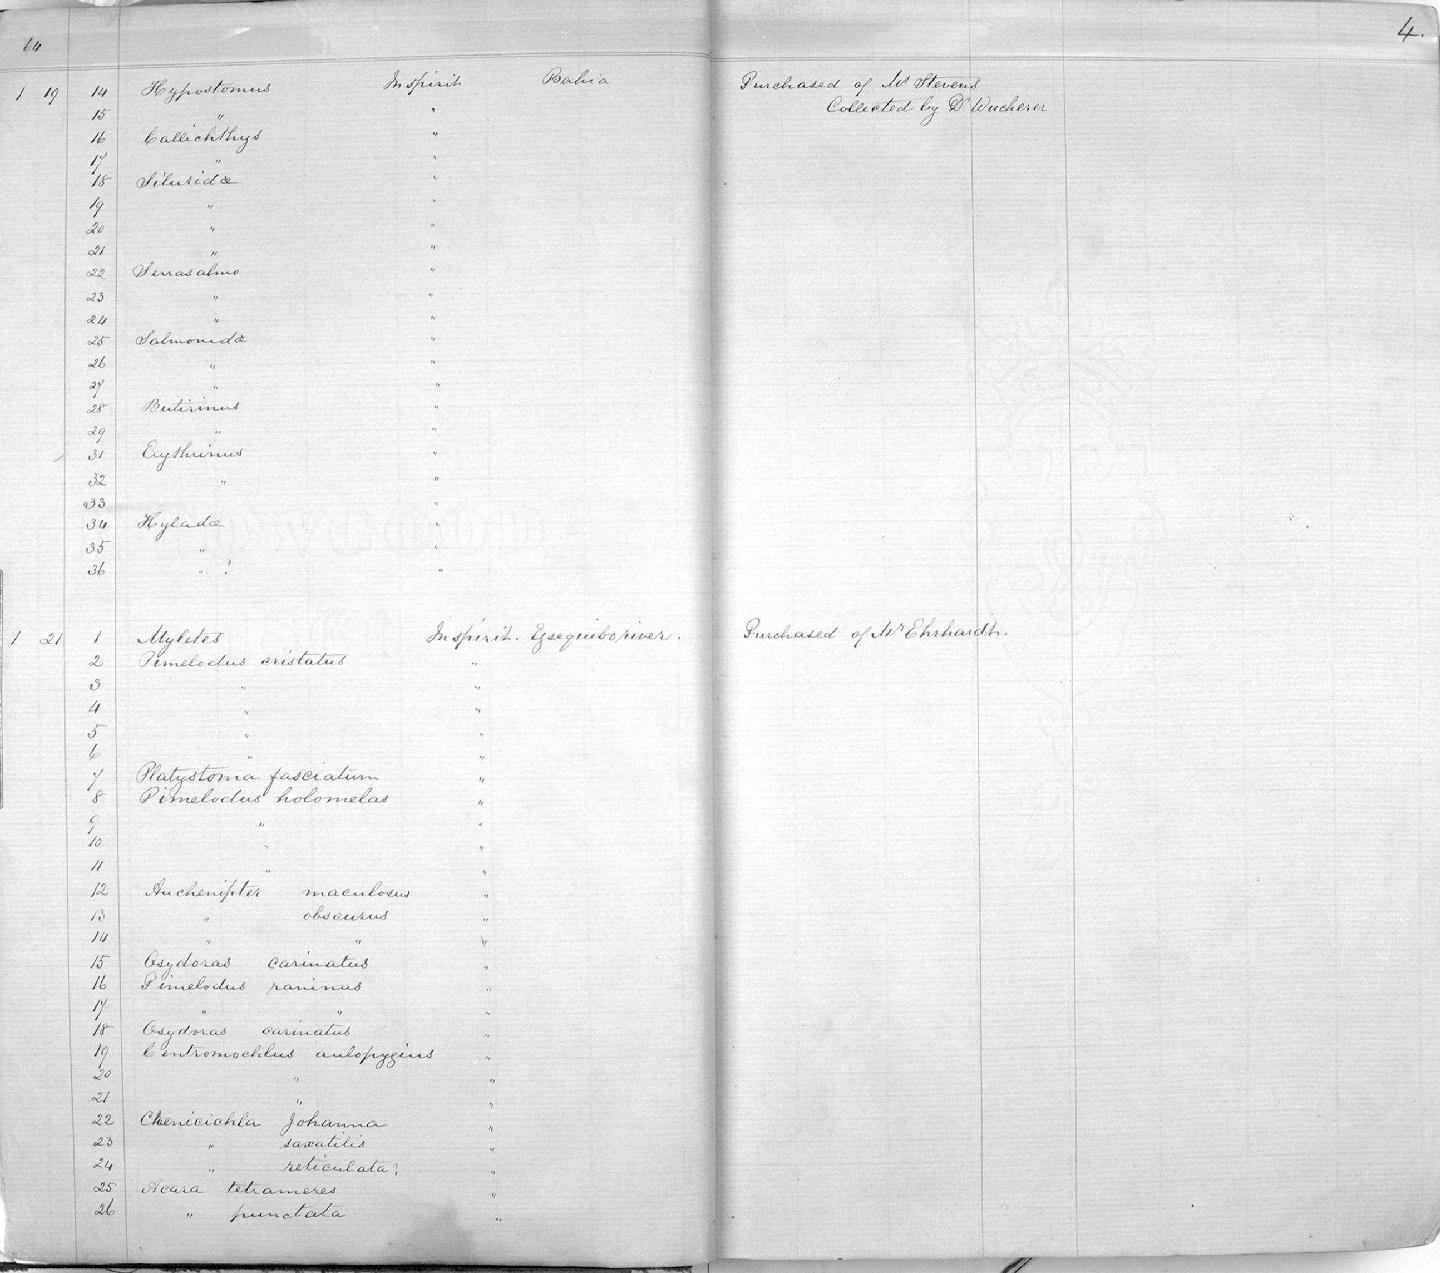 64
4.
1 19 14 Hypostomus In spirit Bahia Purchased of Mr Stevens
15 " " Collected by Dr Wucherer
16 Callichthys "
17 " "
18 Siluridæ "
19 " "
20 " "
21 " "
22 Serrasalmo "
23 " "
24 " "
25 Salmonidæ "
26 " "
27 " "
28 Butirinus "
29 " "
31 Erythrinus "
32 " "
33 "
34 Hyladæ "
35 " "
36 " ? "
1 21 1 Myletes In spirit. Essequibo river. Purchased of Mr Ehrhardt.
2 Pimelodus cristatus "
3 " "
4 " "
5 " "
6 " "
7 Platystoma fasciatum "
8 Pimelodus holomelas "
9 " "
10 " "
11 " "
12 Auchenipter maculosus "
13 " obscurus "
14 " " "
15 Oxydoras carinatus "
16 Pimelodus raninus "
17 " " "
18 Oxydoras carinatus "
19 Centromochlus aulopygius "
20 " "
21 " "
22 Chenicichla Johanna "
23 " saxatilis "
24 " reticulata? "
25 Acara tetrameres "
26 " punctata "